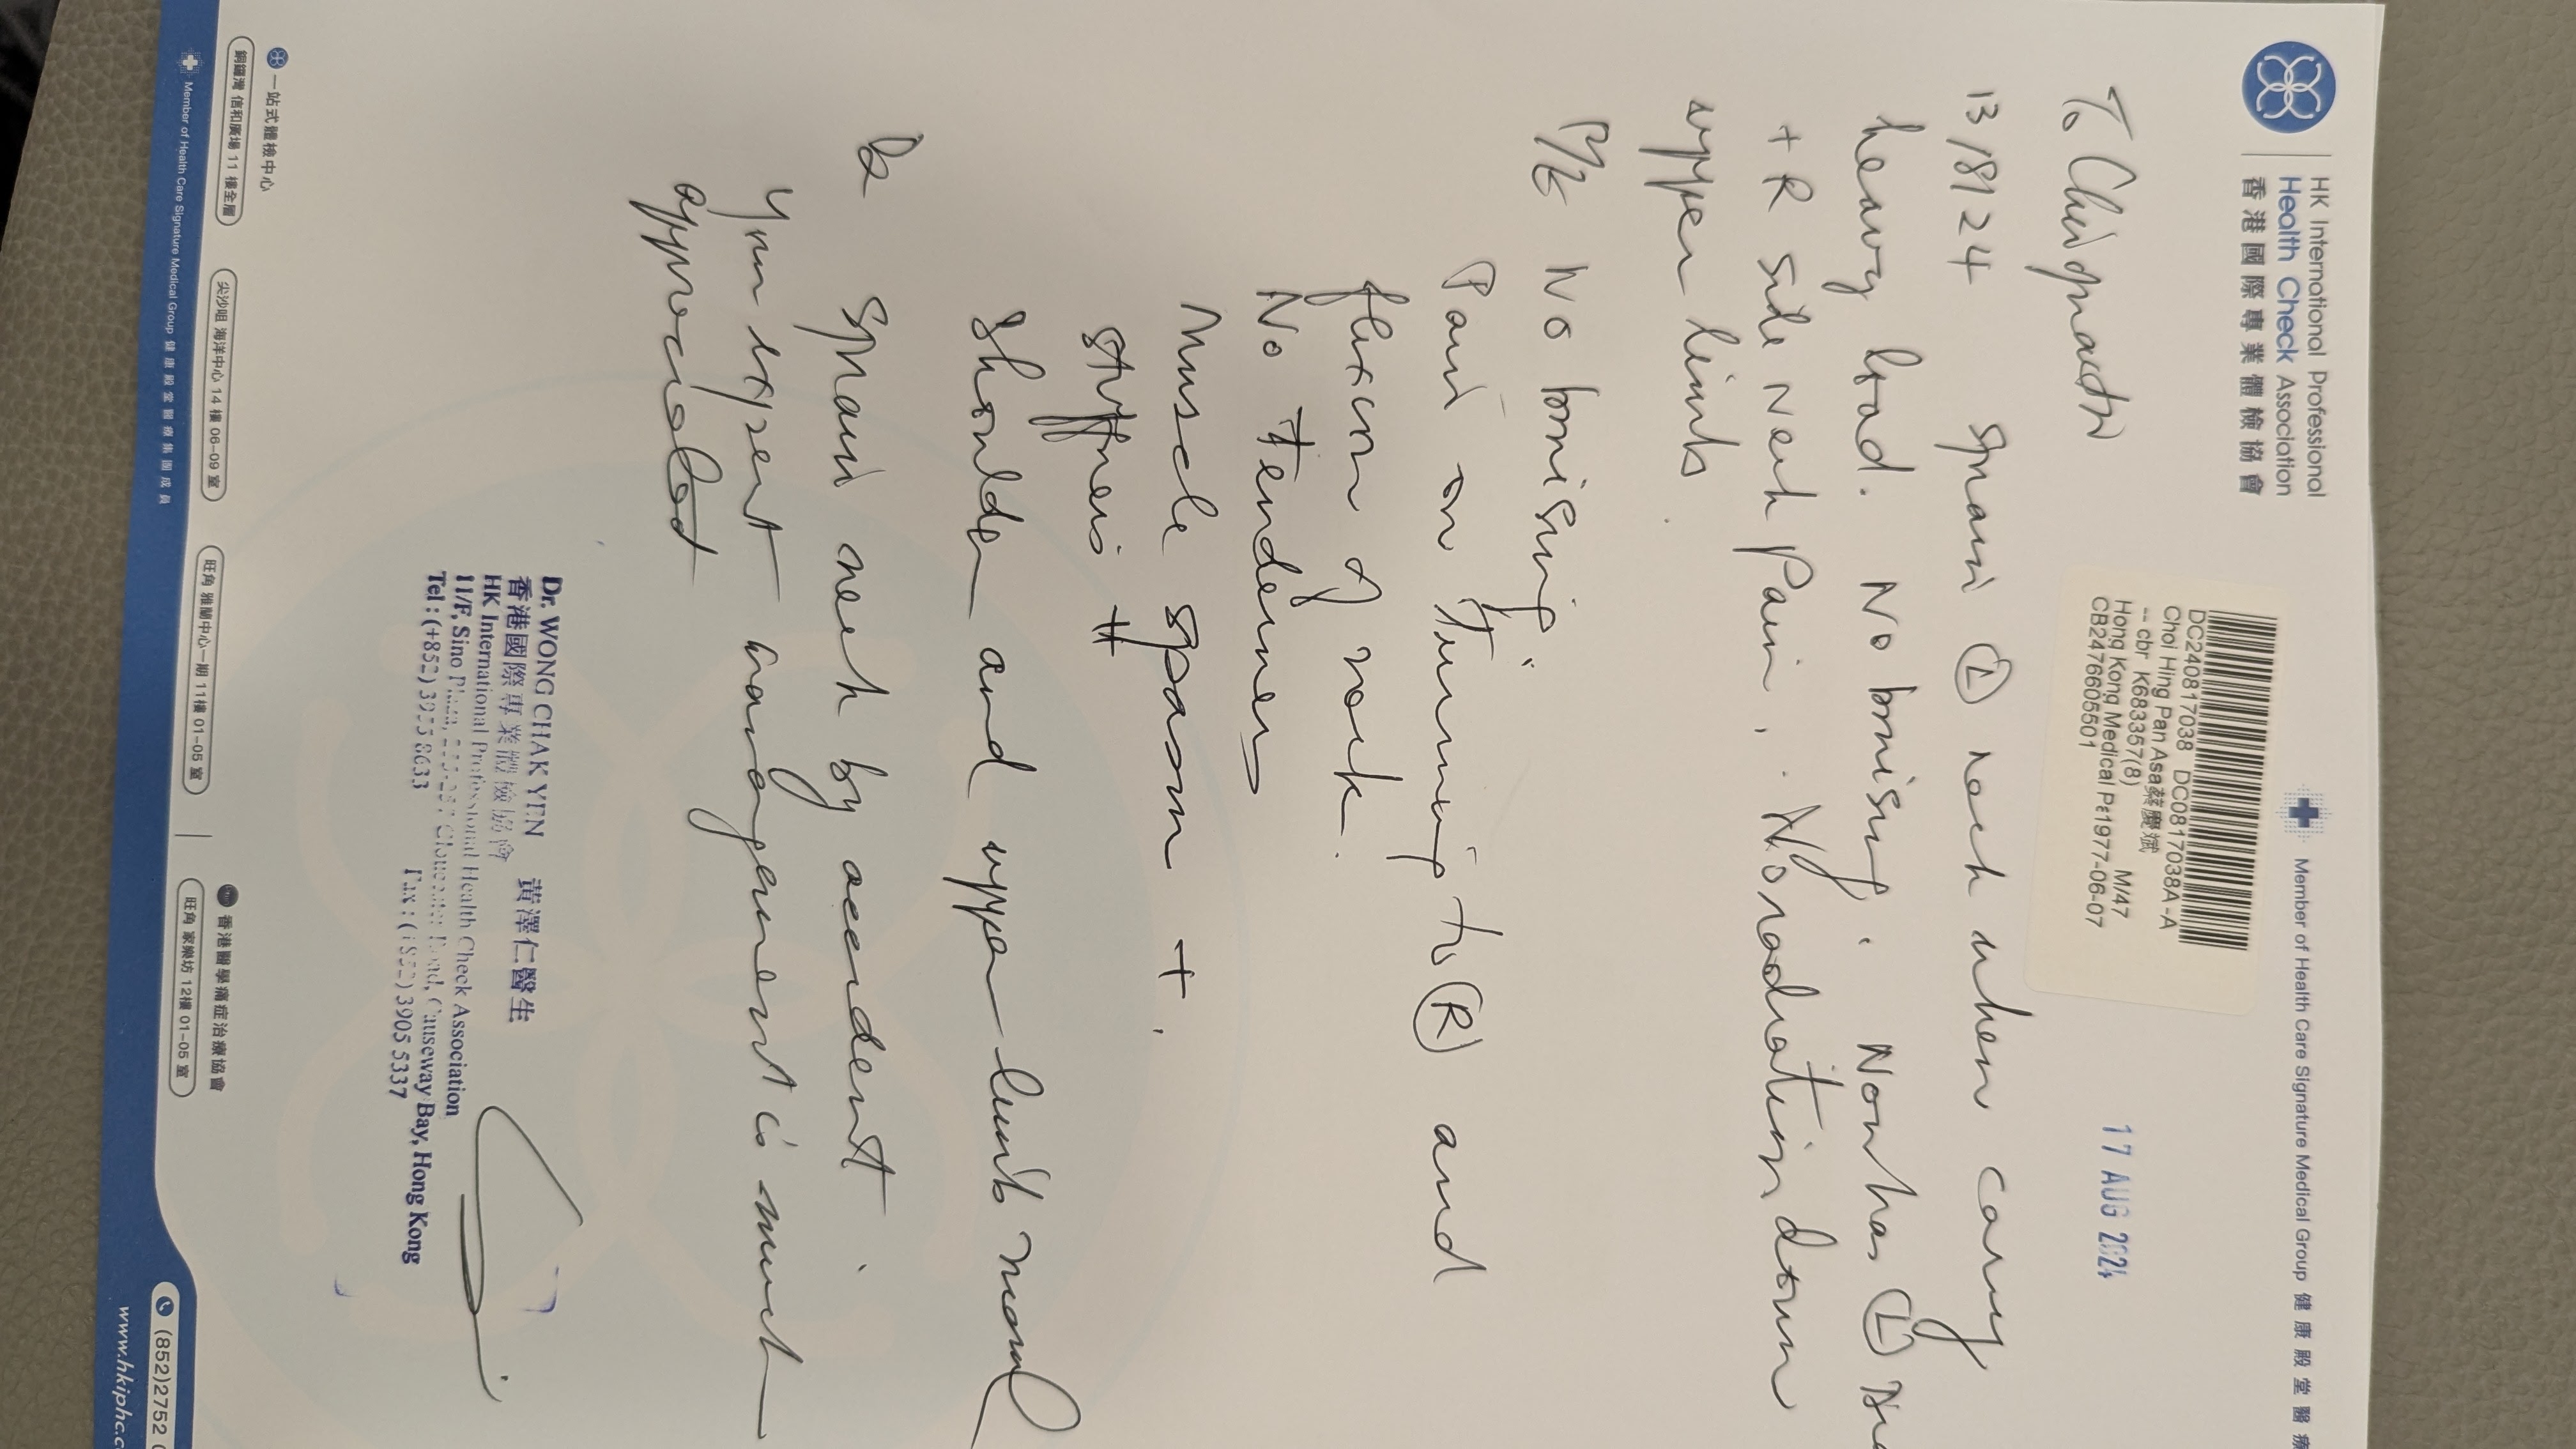 HK International Professional
Health Check Association
香港國際專業體檢協會
Member of Health Care Signature Medical Group 健康殿堂醫療
DC240817038 DC0817038A-A
Choi Hing Pan Asa蔡慶斌
-- cbr K683357(8) M/47
Hong Kong Medical Pε1977-06-07
CB2476605501
17 AUG 2024
To Chiropractor
13/8/24 Sprain (L) neck when carry
heavy load. No bruising. Now has (L)
+ R side neck pain. No radiation down
upper limbs
P/E No bruising
Pain on turning to (R) and
flexion of neck.
No tenderness
Muscle spasm +.
stiffness ++
Shoulder and upper limb normal
Δ Sprain neck by accident
Your expert management is much
appreciated
Dr. WONG CHAK YEN 黃澤仁醫生
香港國際專業體檢協會
HK International Professional Health Check Association
11/F, Sino Plaza, Gloucester Road, Causeway Bay, Hong Kong
Tel : (+852) 3955 8633 Fax : (+852) 3905 5337
一站式體檢中心
香港醫學痛症治療協會
銅鑼灣 信和廣場 11 樓全層
尖沙咀 海洋中心 14 樓 06-09 室
旺角 雅蘭中心一期 11樓 01-05 室
旺角 家樂坊 12樓 01-05 室
(852)2752
Member of Health Care Signature Medical Group 健康殿堂醫療集團成員
www.hkiphc.c